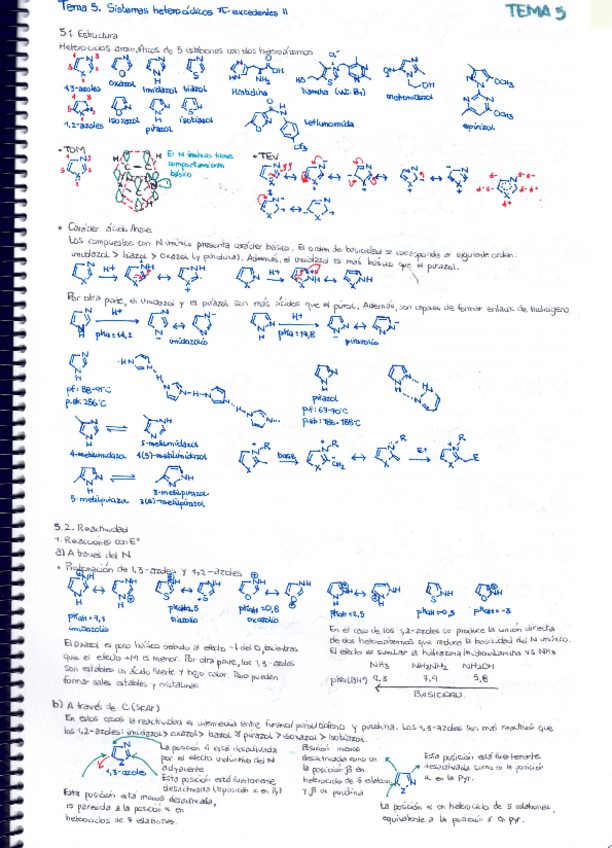 Tema 5. Sistemas heterocíclicos π-excedentes II
TEMA 5
5.1. Estructura
Heterociclos aromáticos de 5 eslabones con dos heteroátomos
1,3-azoles
oxazol
imidazol
tiazol
Histidina
Tiamina (vit. B1)
metronidazol
1,2-azoles
isoxazol
pirazol
isotiazol
Leflunomida
epirizol
• TOM
El N imínico tiene
comportamiento
básico
• TEV
• Carácter ácido/base
Los compuestos con N imínico presenta carácter básico. El orden de basicidad se corresponde al siguiente orden:
imidazol > tiazol > oxazol (y piridina). Además, el imidazol es más básico que el pirazol.
Por otra parte, el imidazol y el pirazol son más ácidos que el pirrol. Además, son capaces de formar enlaces de hidrógeno
pKa = 14,2
imidazolio
H+
pirazolio
pf: 88-91°C
p.eb: 256°C
pirazol
p.f: 67-70°C
p.eb: 186-188°C
4-metilimidazol
5-metilimidazol
4(5)-metilimidazol
base
E+
5-metilpirazol
3-metilpirazol
3(5)-metilpirazol
5.2. Reactividad
1. Reacciones con E+
a) A través del N
• Protonación de 1,3-azoles y 1,2-azoles
imidazolio
pKaH = 2,5
tiazolio
pKaH = 0,8
oxazolio
pKaH = 2,5
pKaH = -3
El oxazol es poco básico debido al efecto -I del O, mientras
que el efecto +M es menor. Por otra parte, los 1,3-azoles
son estables en ácido fuerte y bajo calor. Pero pueden
formar sales estables y cristalinas.
En el caso de los 1,2-azoles se produce la unión directa
de dos heteroátomos que reduce la basicidad del N imínico.
El efecto es similar a hidrazina/hidroxilamina vs NH3
NH3 NH2NH2 NH2OH
pKa(BH+) 9,3 7,9 5,8
BASICIDAD
b) A través de C (SEAr)
En estos casos la reactividad es intermedia entre furano/pirrol/tiofeno y piridina. Los 1,3-azoles son más reactivos que
los 1,2-azoles: imidazol > oxazol > tiazol
1,3-azoles
La posición 4 está desactivada
por el efecto inductivo del N
adyacente
Esta posición está fuertemente
desactivada
Esta posición está menos desactivada,
es parecida a la posición α en
heterociclos de 5 eslabones.
Posición menos
desactivada como en
la posición β en
heterociclo de 5 eslabones
y β en piridina
Esta posición está fuertemente
desactivada como en la posición
α en la Pyr.
La posición α en heterociclo de 5 eslabones,
equivalente a la posición